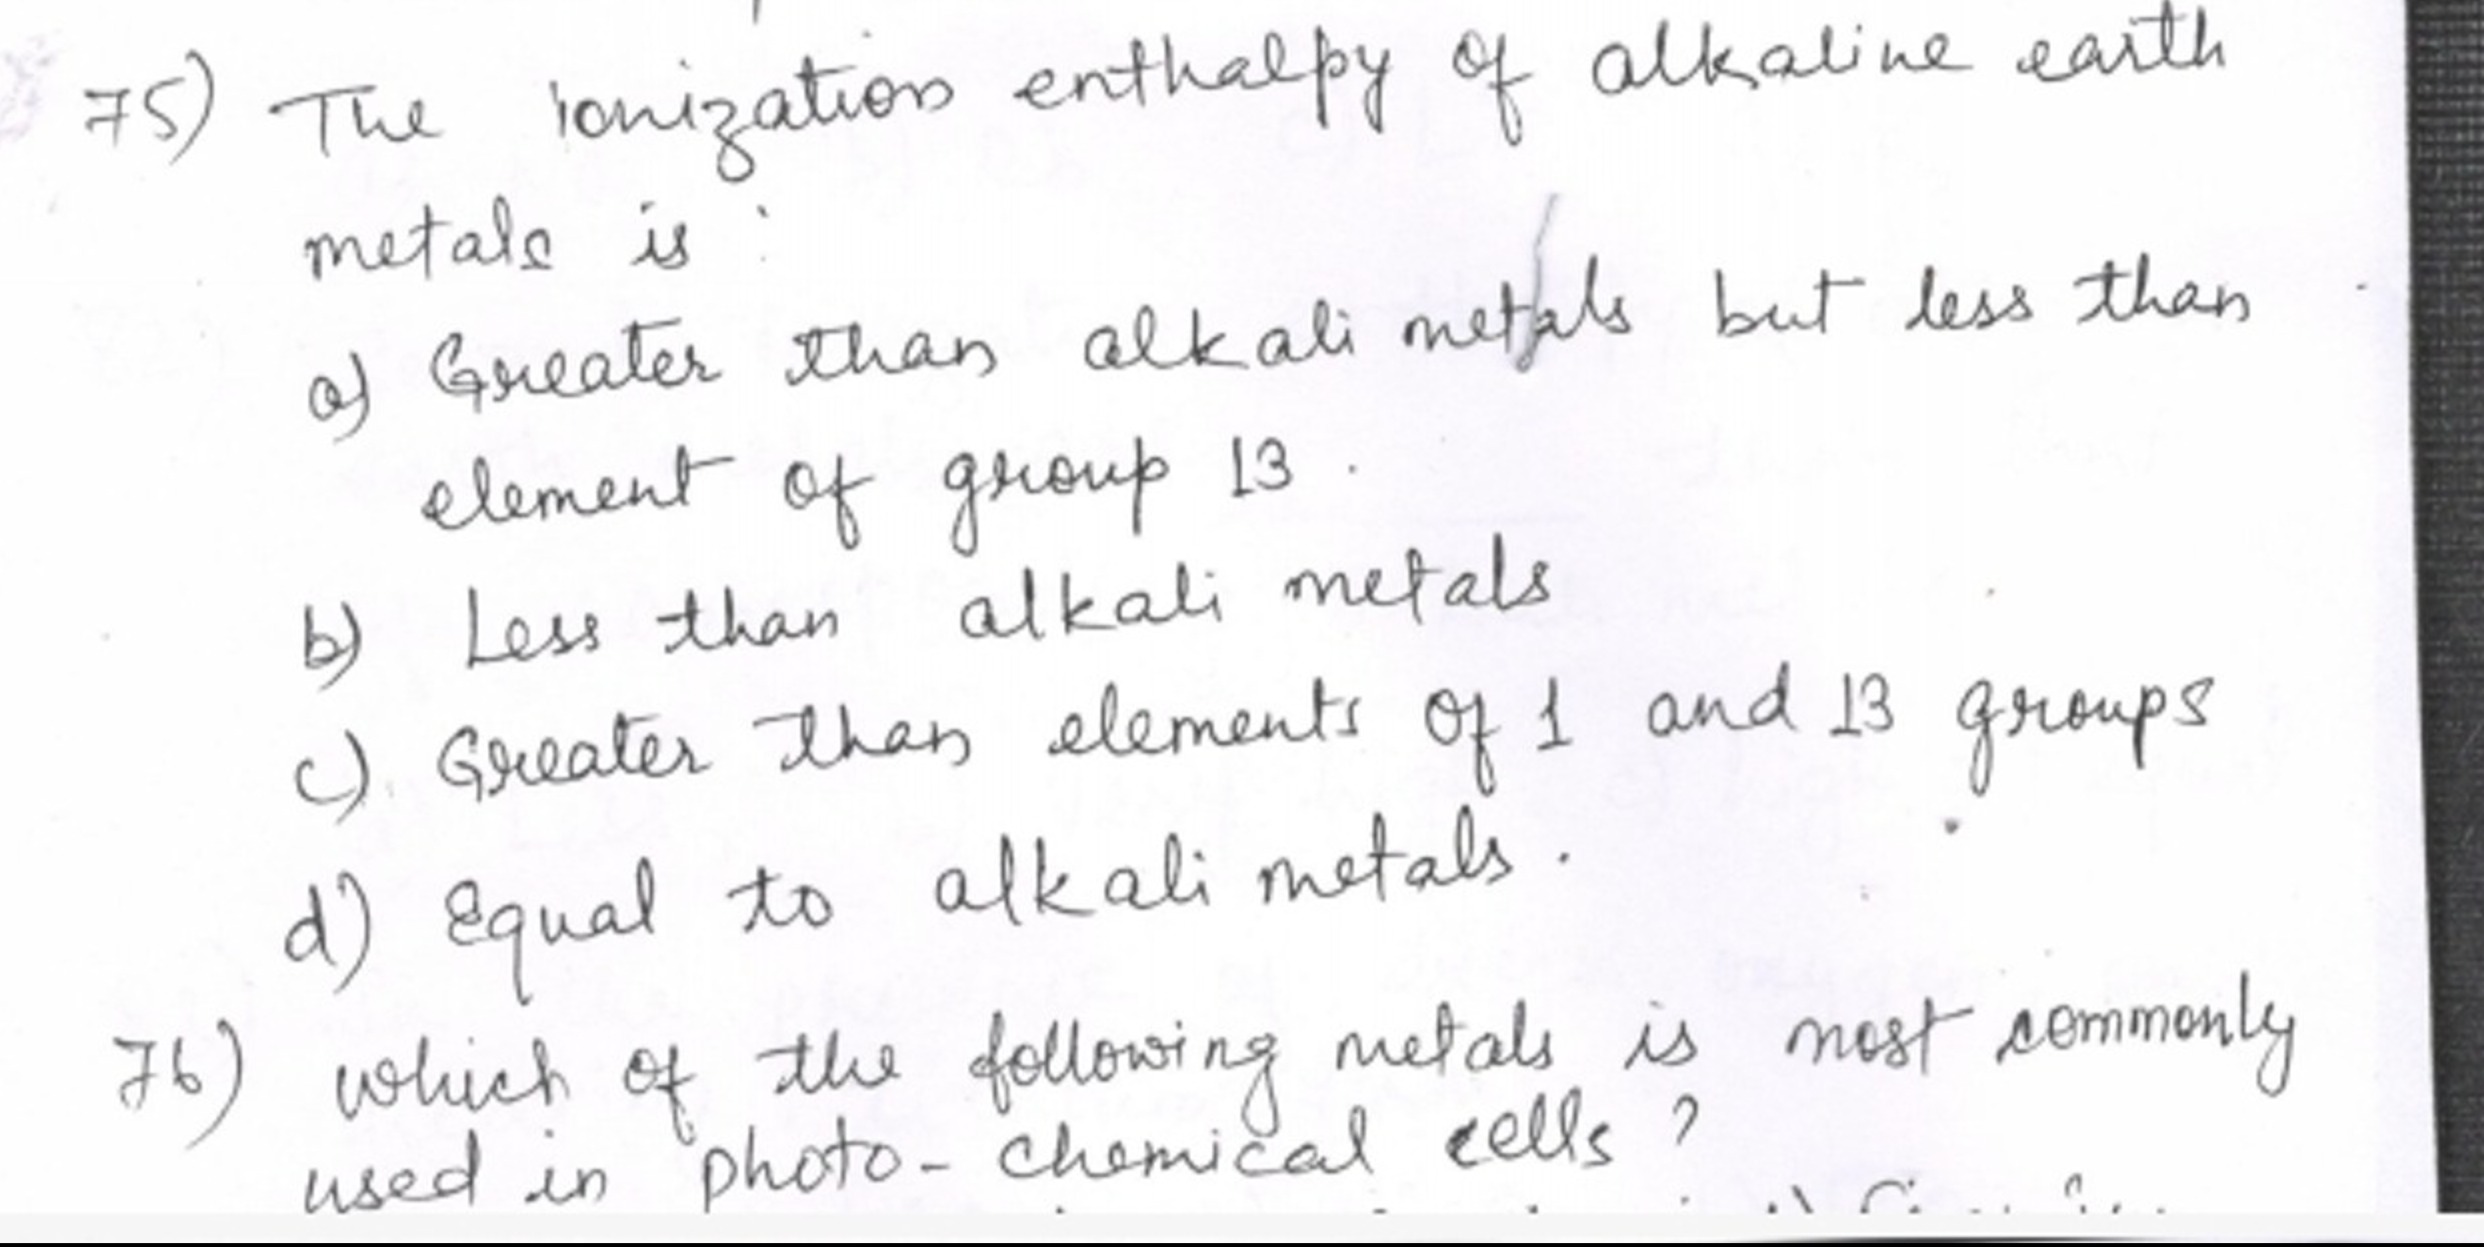 75) The ionization enthalpy of alkaline earth
metals is :
a) Greater than alkali metals but less than
element of group 13.
b) Less than alkali metals
c) Greater than elements of 1 and 13 groups
d) Equal to alkali metals.
76) which of the following metals is most commonly
used in photo-chemical cells?